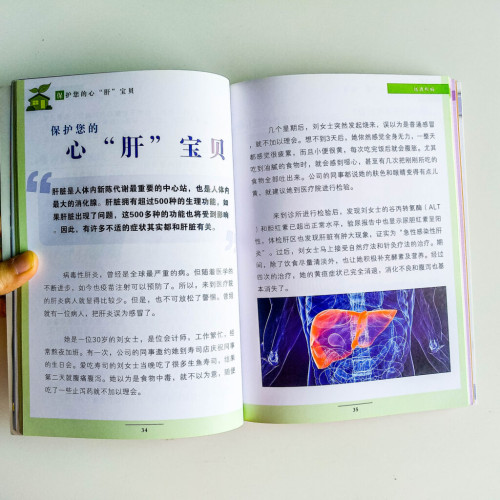 保护您的心“肝”宝贝
保护您的
心“肝”宝贝
肝脏是人体内新陈代谢最重要的中心站，也是人体内
最大的消化腺。肝脏拥有超过500种的生理功能，如
果肝脏出现了问题，这500多种的功能也将受到影响
。因此，有许多不适的症状其实都和肝脏有关。
病毒性肝炎，曾经是全球最严重的病。但随着医学的
不断进步，如今也疫苗注射可以预防了。所以，来到医疗院
的肝炎病人就显得比较少。但是，也不可放松了警惕。曾经
就有一位病人，把肝炎误为感冒了。
她是一位30岁的刘女士，是位会计师，工作繁忙，经
常熬夜加班。有一次，公司的同事邀约她到寿司店庆祝同事
的生日会。爱吃寿司的刘女士当晚吃了很多生鱼寿司，结果
第二天就腹痛腹泻。她以为是食物中毒，就不以为意，随便
吃了一些止泻药就不加以理会。
34
几个星期后，刘女士突然发起烧来，误以为是普通感冒
，就不加以理会。想不到3天后，她依然感觉全身无力，一整天
都感觉很疲累，而且小便很黄，每次吃完饭后就会腹胀。尤其
吃到油腻的食物时，就会感到恶心，甚至有几次把刚刚吃的
食物全部吐出来。公司的同事都说她的肤色和眼睛变得有点儿
黄，就建议她到医疗院进行检验。
来到诊所进行检验后，发现刘女士的谷丙转氨酶（ALT
）和胆红素已超出正常水平，验尿报告中也显示尿胆红素呈阳
性。体检肝区也发现肝脏有肿大现象，证实为“急性感染性肝
炎”。过后，刘女士马上接受自然疗法和针灸疗法的治疗。期
间，除了饮食尽量清淡外，也让她积极补充酵素及营养。经过
几次的治疗，她的黄疸症状已完全消退，消化不良和腹泻也基
本消失了。
35